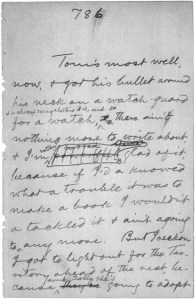 786
Tom's most well,
now, & got his bullet around
his neck on a watch-guard
for a watch, & is always seeing what time it is, and so there ain't
nothing more to write about,
& I'm glad of it,
because if I'd a knowed
what a trouble it was to
make a book I wouldn't
a tackled it & ain't agoing
to any more. But I reckon
I got to light out for the Ter-
ritory ahead of the rest, be-
cause going to adopt